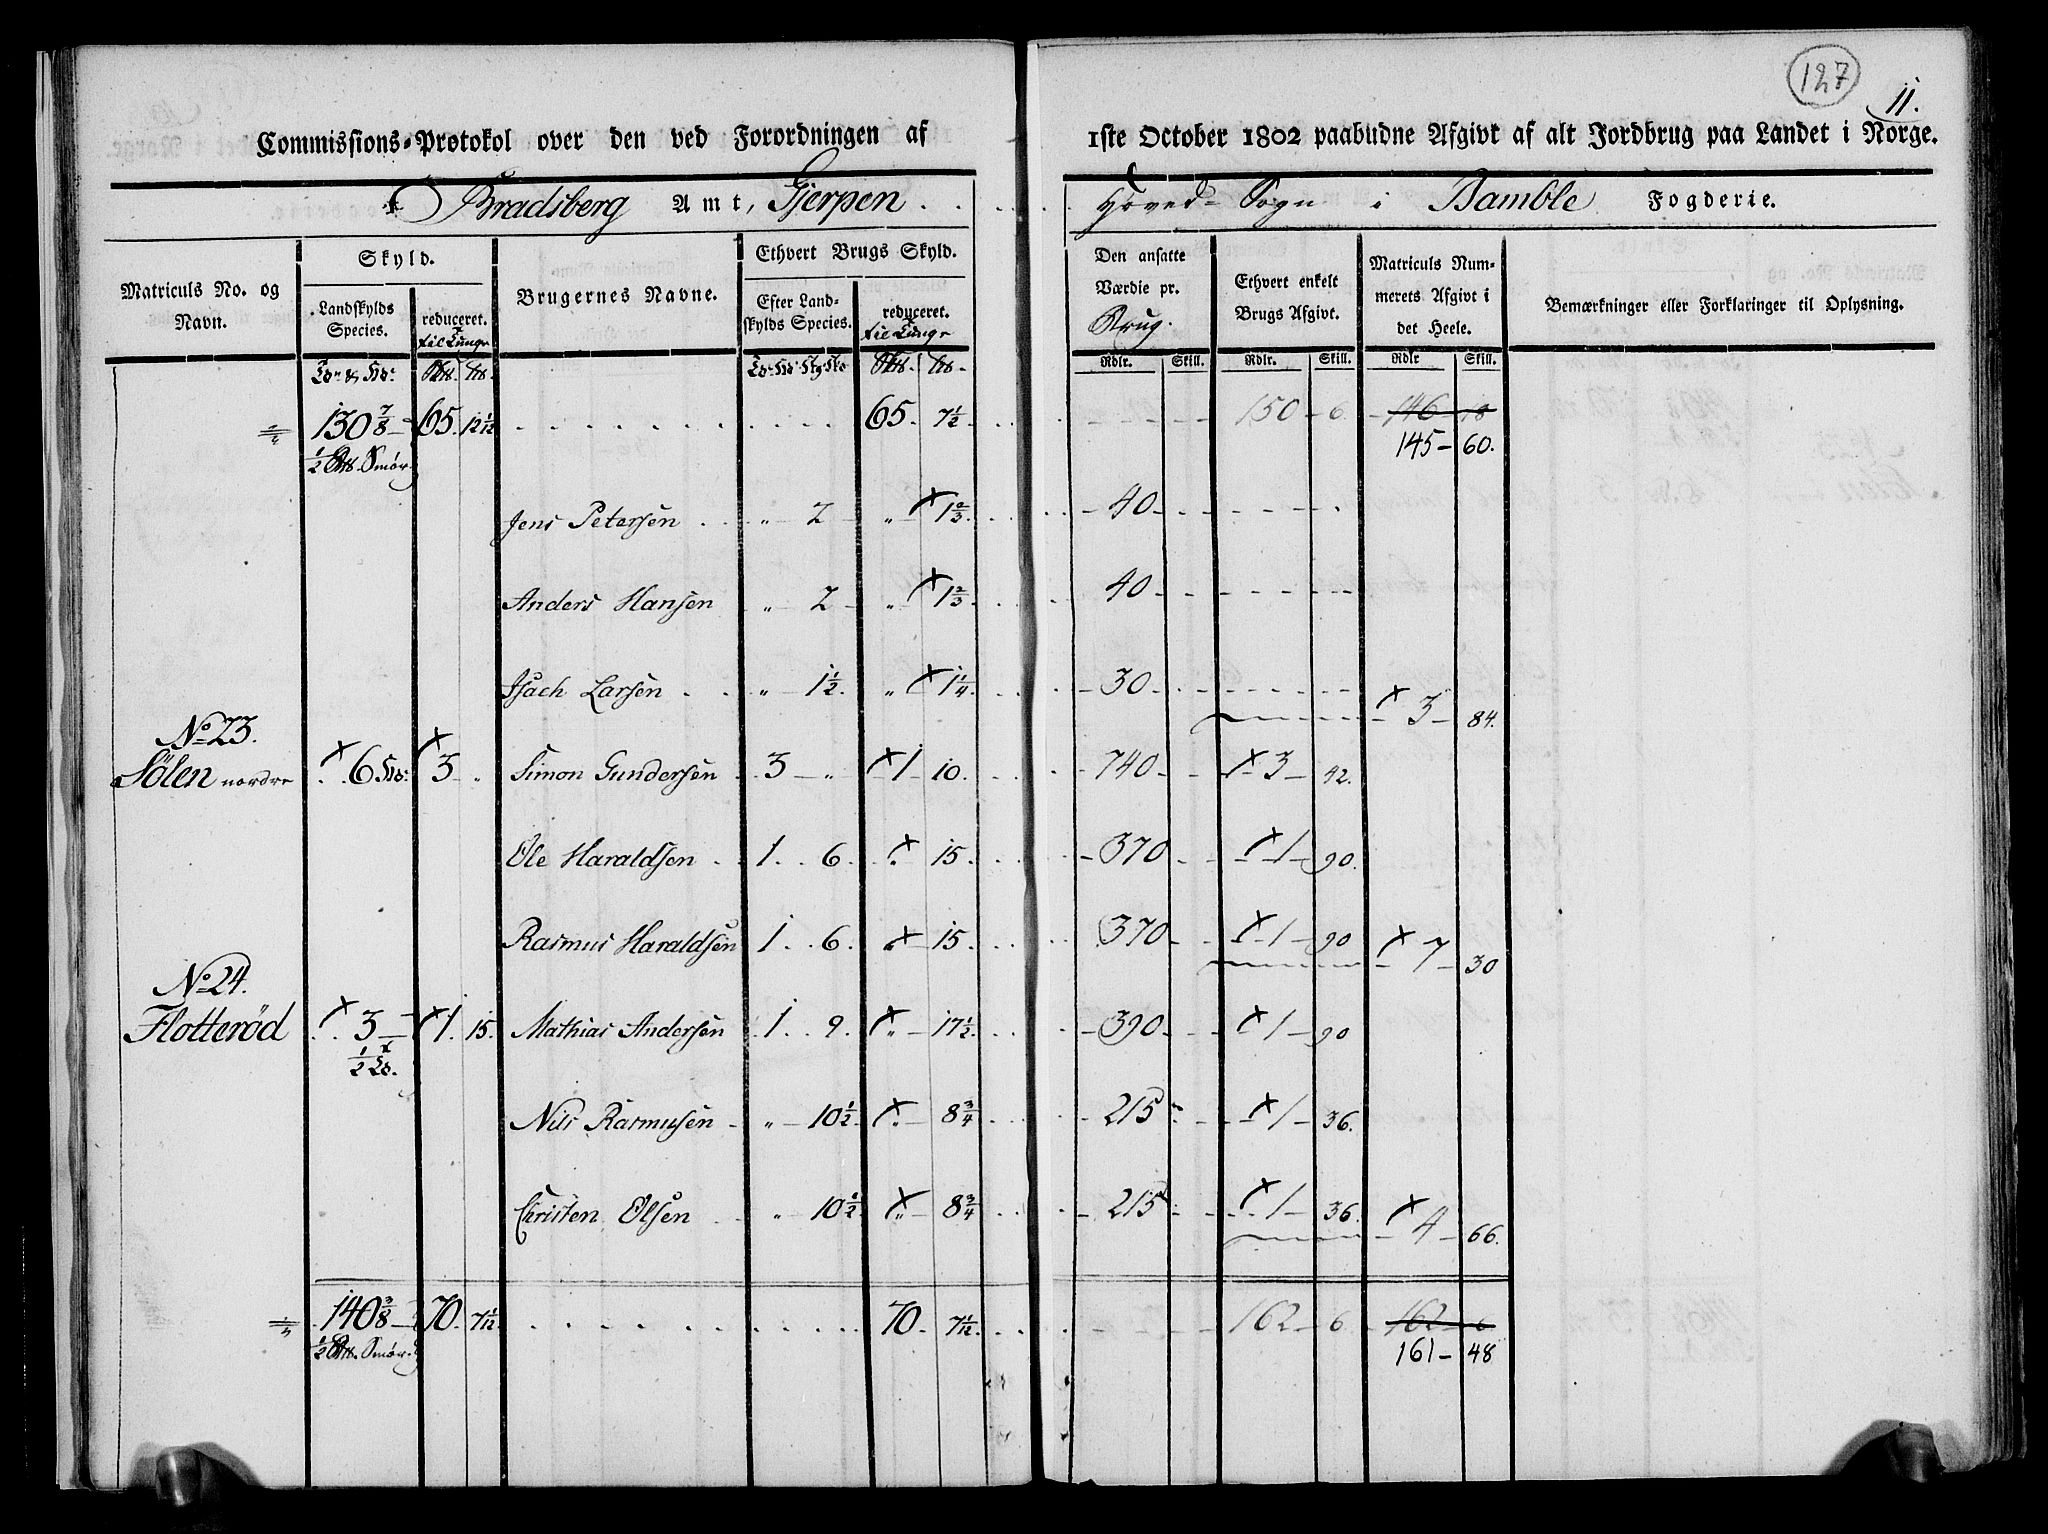 127
11.
Commissions-Protokol over den ved Forordningen af 1ste October 1802 paabudne Afgivt af alt Jordbrug paa Landet i Norge.
Bradsberg Amt, Gjerpen Hoved-Sogn i Bamble Fogderie.
Matriculs No. og Navn.
Skyld.
Landskylds Species.
reduceret til Tunge
Brugernes Navne.
Ethvert Brugs Skyld.
Efter Landskylds Species.
reduceret til Tunge
Den ansatte Værdie pr. Brug.
Ethvert enkelt Brugs Afgivt.
Matriculs Nummerets Afgivt i det Heele.
Bemærkninger eller Forklaringer til Oplysning.
Rdlr. Skill. Rdlr. Skill. Rdlr Skill.
130 7/8 65. 12 1/2 65. 7 1/2 150 6 146 18
1/2 Smør. 145 60.
Jens Petersen „ 2 „ 1 2/3 40
Anders Hansen „ 2 „ 1 2/3 40
Isach Larsen „ 1 1/2 „ 1 1/4 30
3 84.
No 23.
Sölen nordre 6 3 „ Simon Gundersen 3 „ 1 10. 740 3 42.
Ole Haraldsen 1 6 „ 15 370 1 90.
Rasmus Haraldsen 1 6. „ 15 370 1 90
7 30
No 24.
Flotteröd 3 1. 15. Mathias Andersen 1 9. „ 17 1/2 390 1 90
1/2
Nils Rasmusen „ 10 1/2 „ 8 3/4 215 1 36.
Christen Olsen „ 10 1/2 „ 8 3/4 215 1 36.
4 66.
140 3/8 70. 7 1/2 70. 7 1/2 162 6 162 6
1/2 Smør. 161 48